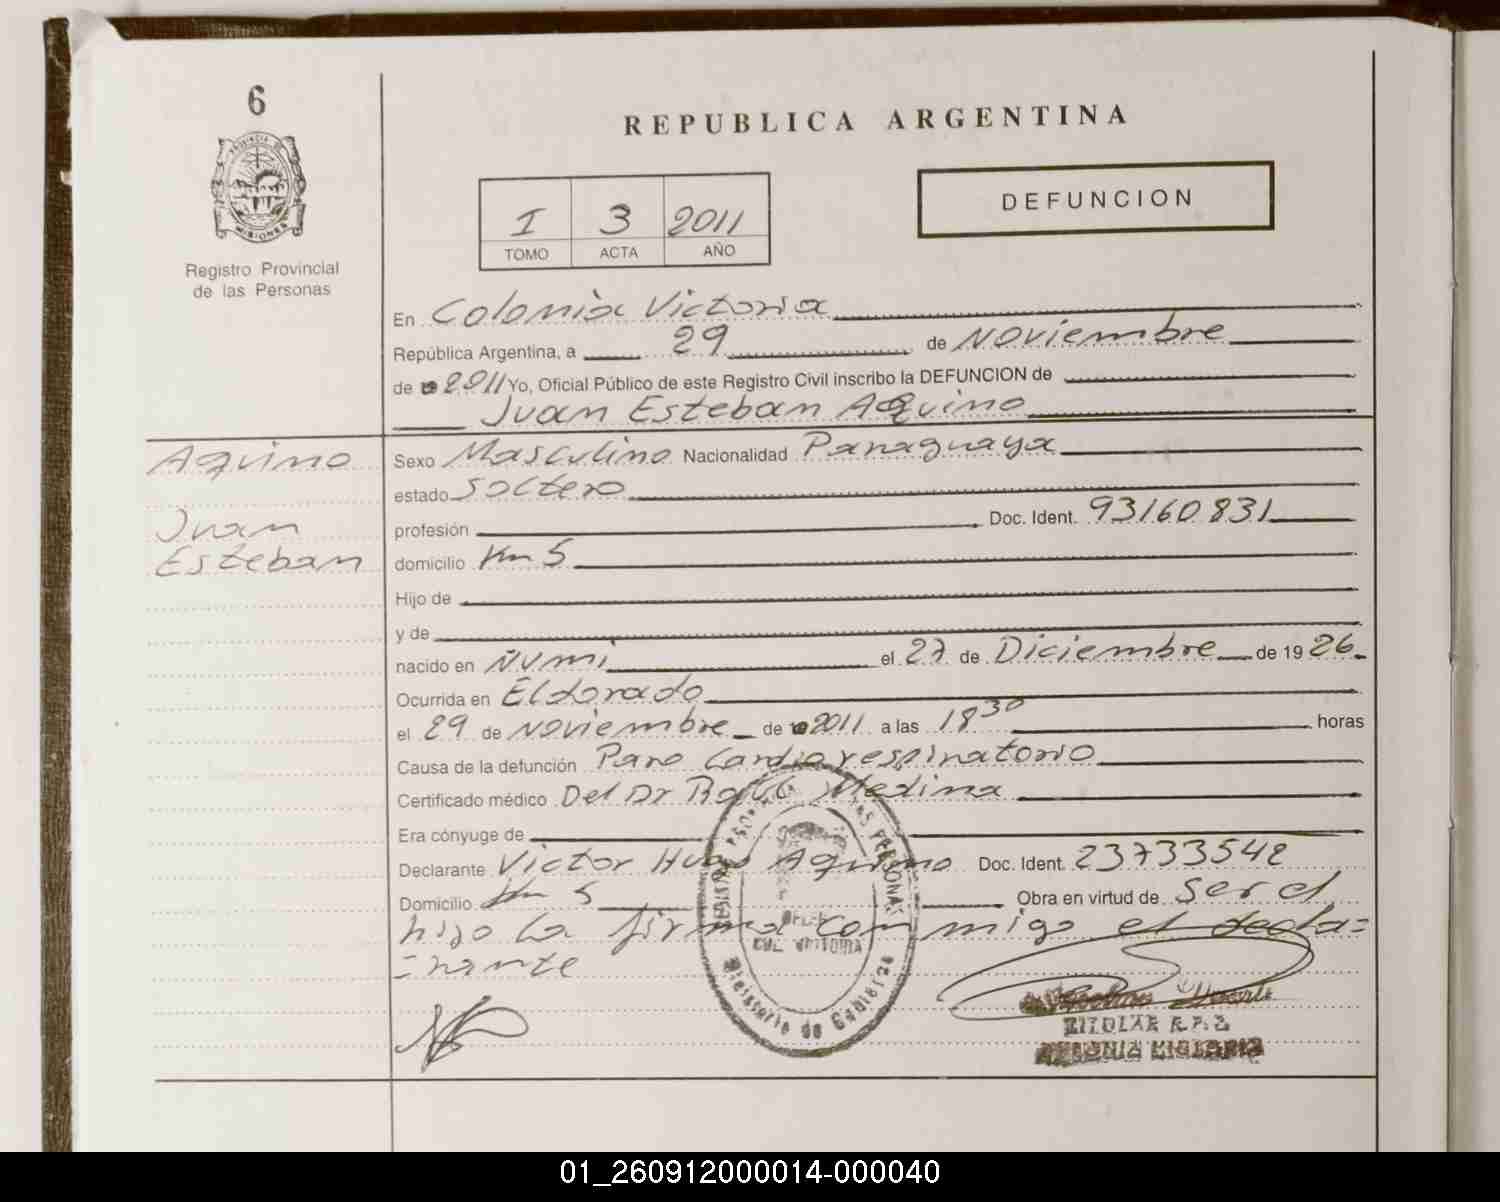 6
PROVINCIA DE
MISIONES
Registro Provincial
de las Personas
REPUBLICA ARGENTINA
I 3 2011
TOMO ACTA AÑO
DEFUNCION
En Colonia Victoria
República Argentina, a 29 de Noviembre
de 2011 Yo, Oficial Público de este Registro Civil inscribo la DEFUNCION de
Juan Esteban Aquino
Aquino
Juan
Esteban
Sexo Masculino Nacionalidad Paraguaya
estado Soltero
profesión Doc. Ident. 93160831
domicilio Km 5
Hijo de
y de
nacido en Ñumi el 27 de Diciembre de 1926
Ocurrida en Eldorado
el 29 de Noviembre de 2011 a las 18 30 horas
Causa de la defunción Paro Cardiorespiratorio
Certificado médico Del Dr Medina
Era cónyuge de
Declarante Victor Hugo Aquino Doc. Ident. 23733542
Domicilio Km 5 Obra en virtud de Ser el
hijo La firma conmigo el decla=
=rante
PERSONAS
Ministerio de Gobierno
TITULAR R.P.
01_260912000014-000040